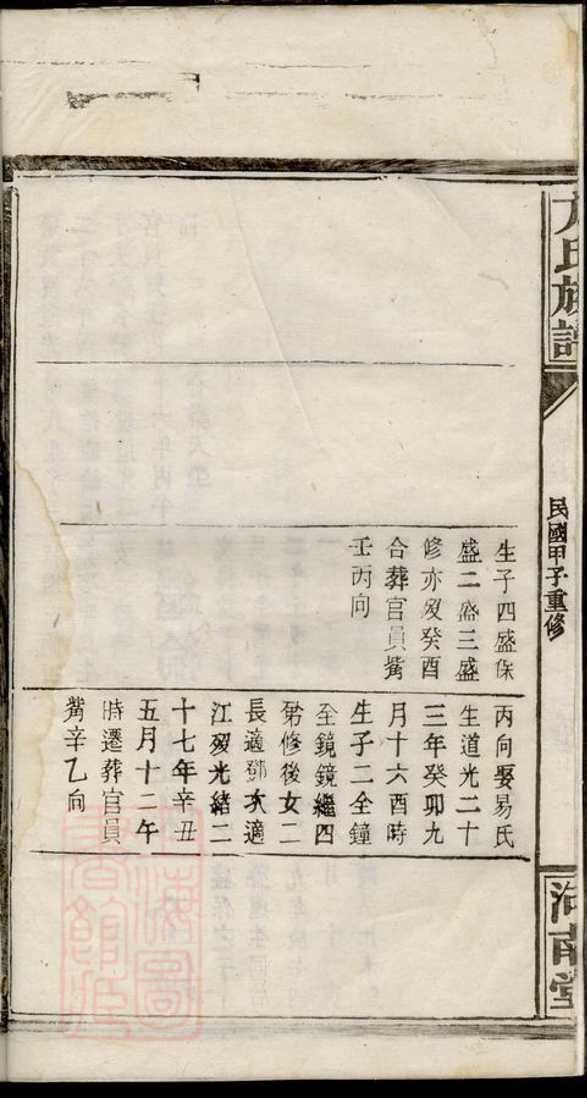 方氏族譜
民國甲子重修
河南堂
生子四盛保
盛二盛三盛
修亦歿癸酉
合葬官員觜
壬丙向
丙向娶易氏
生道光二十
三年癸卯九
月十六酉時
生子二全鐘
全鏡鏡繼四
弟修後女二
長適鄧次適
江歿光緒二
十七年辛丑
五月十二午
時遷葬官員
觜辛乙向